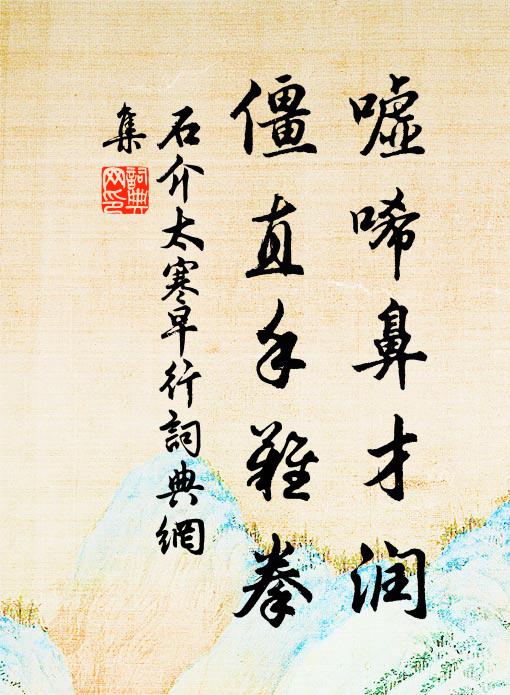 嘘唏鼻才润
僵直手难拳
石介太寒早行詞典網
集
詞典网印